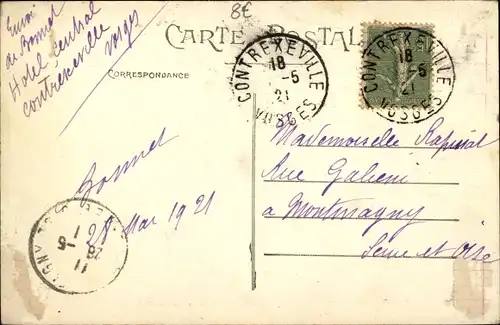 8€
Envoi
de Bonnet
Hotel Central
contrexeville
vosges
CARTE POSTALE
CORRESPONDANCE
CONTREXEVILLE
18
-5
21
VOSGES
CONTREXEVILLE
18
-5
21
VOSGES
Mademoiselle
Rue Galieni
à Montmagny
Seine et Oise
Bonnet
28 Mai 1921